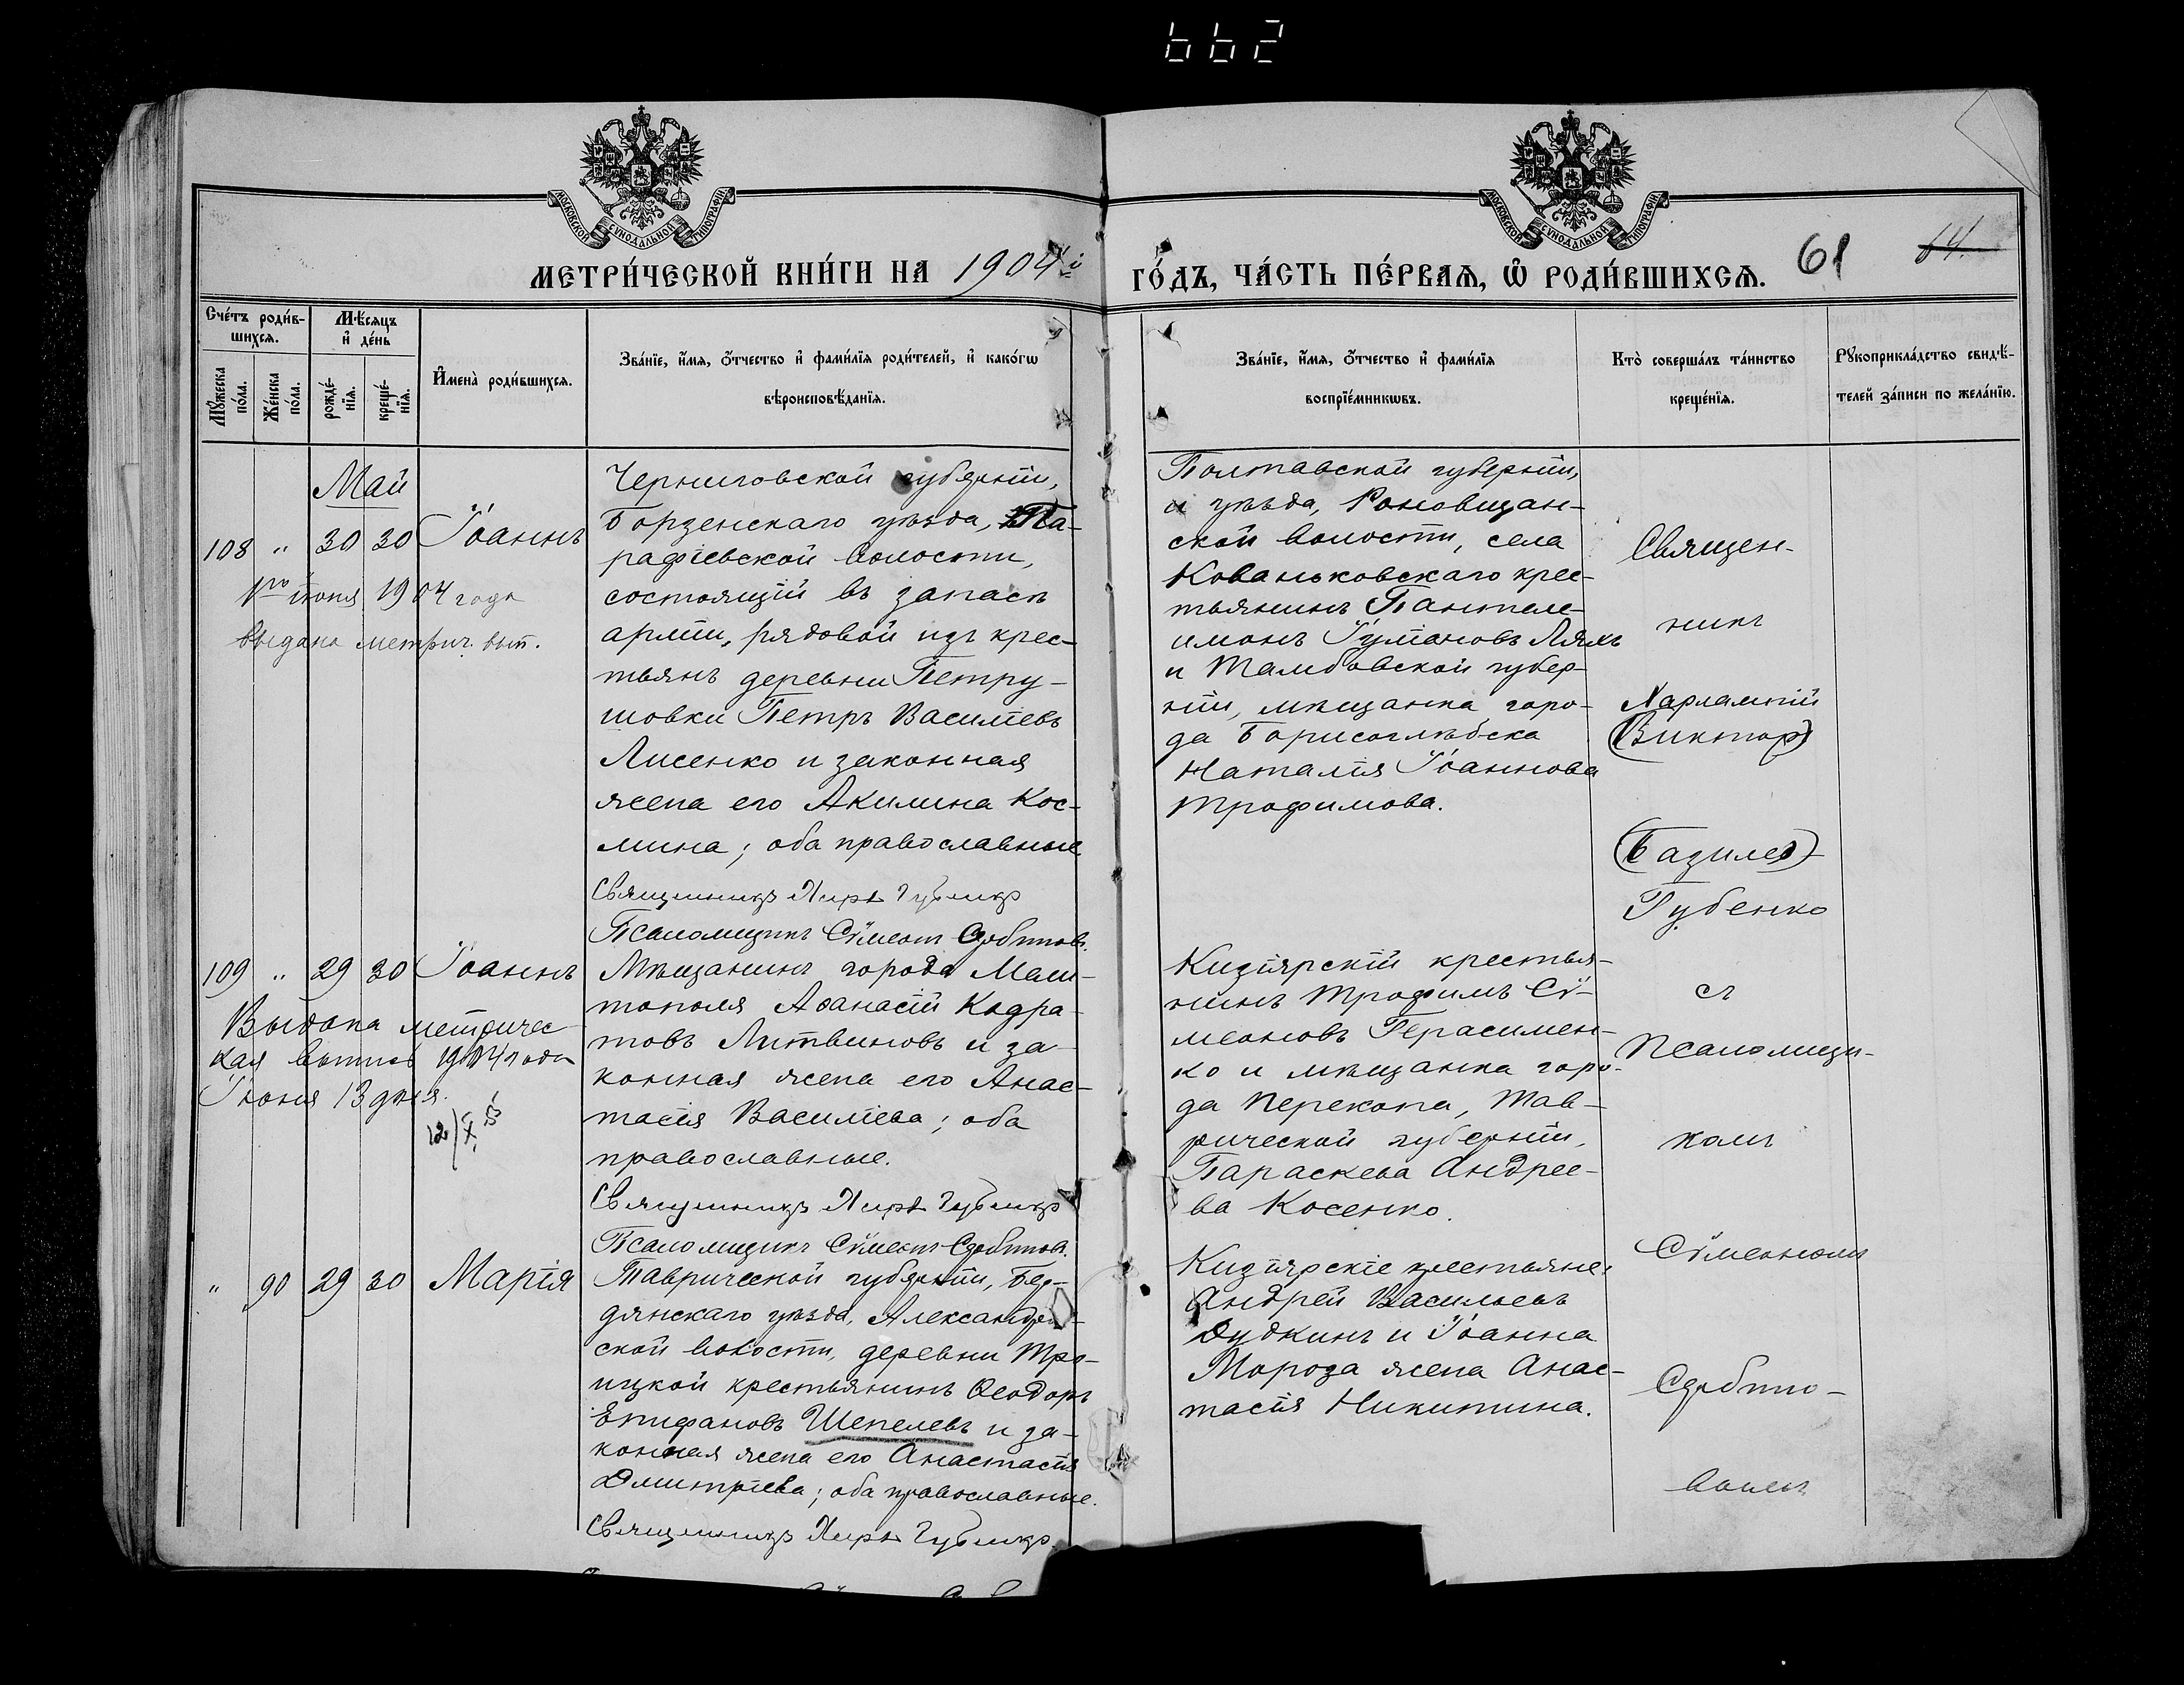 662
МОСКОВСКОЙ СѴНОДАЛЬНОЙ ТИПОГРАФІИ
МОСКОВСКОЙ СѴНОДАЛЬНОЙ ТИПОГРАФІИ
МЕТРИ́ЧЕСКОЙ КНИ́ГИ НА 1904й
ГО́ДЪ, ЧА́СТЬ ПЕ́РВАѦ, Ѽ РОДИ́ВШИХСѦ. 61 64.
Сче́тъ роди́в-
шихсѧ.
Мꙋ́жеска по́ла.
Же́нска по́ла.
Мѣ́сѧцъ
и҆ де́нь
рожде́-
нїѧ.
креще́-
нїѧ.
И҆мена̀ роди́вшихсѧ.
Зва́нїе, и҆́мѧ, ѻ҆́тчество и҆ фами́лїѧ роди́телей, и҆ како́гѡ
вѣроисповѣ́данїѧ.
Зва́нїе, и҆́мѧ, ѻ҆́тчество и҆ фами́лїѧ
воспрїе́мникѡвъ.
Кто̀ соверша́лъ та́инство
креще́нїѧ.
Рꙋкоприкла́дство свидѣ́-
телей за́писи по жела́нїю.
Май
108 " 30 30 Іоаннъ
1го іюня 1904 года
выдана метрич. вып.
Черниговской губерніи,
Борзенскаго уѣзда, Па-
рафіевской волости,
состоящій въ запасѣ
арміи, рядовой изъ крес-
тьянъ деревни Петру-
шовки Петръ Василіевъ
Лисенко и законная
жена его Акилина Кос-
мина; оба православные.
Священникъ Хар. Губенко
Псаломщикъ Сѵмеонъ Сдобнов.
Полтавской губерніи,
и уѣзда, Роновщан-
ской волости, села
Кованьковскаго крес-
тьянинъ Пантеле-
имонъ Іуліановъ Ляхъ
и Тамбовской губер-
ніи, мѣщанка горо-
да Борисоглѣбска
Наталія Іоаннова
Трофимова.
Священ-
никъ
Харлампій
(Виктор)
(Базилев)
Губенко
съ
Псаломщи-
комъ
Сѵмеономъ
Сдобно-
вымъ
109 " 29 30 Іоаннъ
Выдана метричес
кая выпись 1904 года
Іюня 13 дня.
Мѣщанинъ города Мели-
тополя Аѳанасій Кодра-
товъ Литвиновъ и за-
конная жена его Анас-
тасія Василіева; оба
православные.
Священникъ Хар. Губенко
Псаломщикъ Сѵмеонъ Сдобнов.
Кизіярскій крестья-
нинъ Трофимъ Сѵ-
меоновъ Герасимен-
ко и мѣщанка горо-
да Перекопа, Тав-
рической губерніи,
Параскева Андрее-
ва Косенко.
" 90 29 30 Марія
Таврической губерніи, Бер-
дянскаго уѣзда, Александров-
ской волости, деревни Тро-
ицкой крестьянинъ Ѳеодоръ
Епифановъ Шепелевъ и за-
конная жена его Анастасія
Димитріева; оба православные.
Священникъ Хар. Губенко.
Кизіярскіе крестьяне:
Андрей Васильевъ
Дудкинъ и Іоанна
Мороза жена Анас-
тасія Никитина.